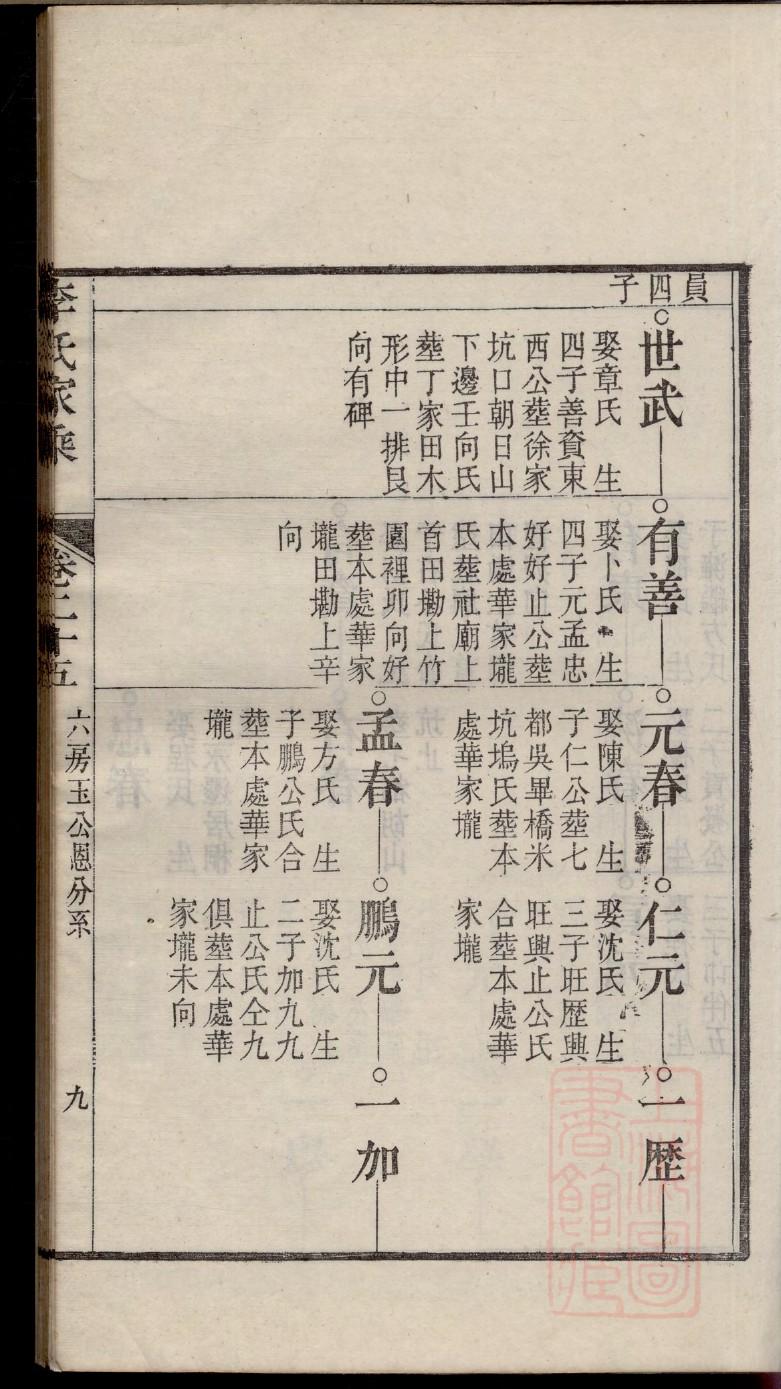 員四子
世武
娶章氏　生
四子善資東
西公塟徐家
坑口朝日山
下邊壬向氏
塟丁家田木
形中一排艮
向有碑
有善
娶卜氏　生
四子元孟忠
好好止公塟
本處華家壠
氏塟社廟上
首田墈上竹
園裡卯向好
塟本處華家
壠田墈上辛
向
元春
娶陳氏　生
子仁公塟七
都吳畢橋米
坑塢氏塟本
處華家壠
仁元
娶沈氏　生
三子旺歷興
旺興止公氏
合塟本處華
家壠
一歷
孟春
娶方氏　生
子鵬公氏合
塟本處華家
壠
鵬元
娶沈氏　生
二子加九九
止公氏仝九
俱塟本處華
家壠未向
一加
李氏家乘
卷二十五
六房玉公恩分系
九